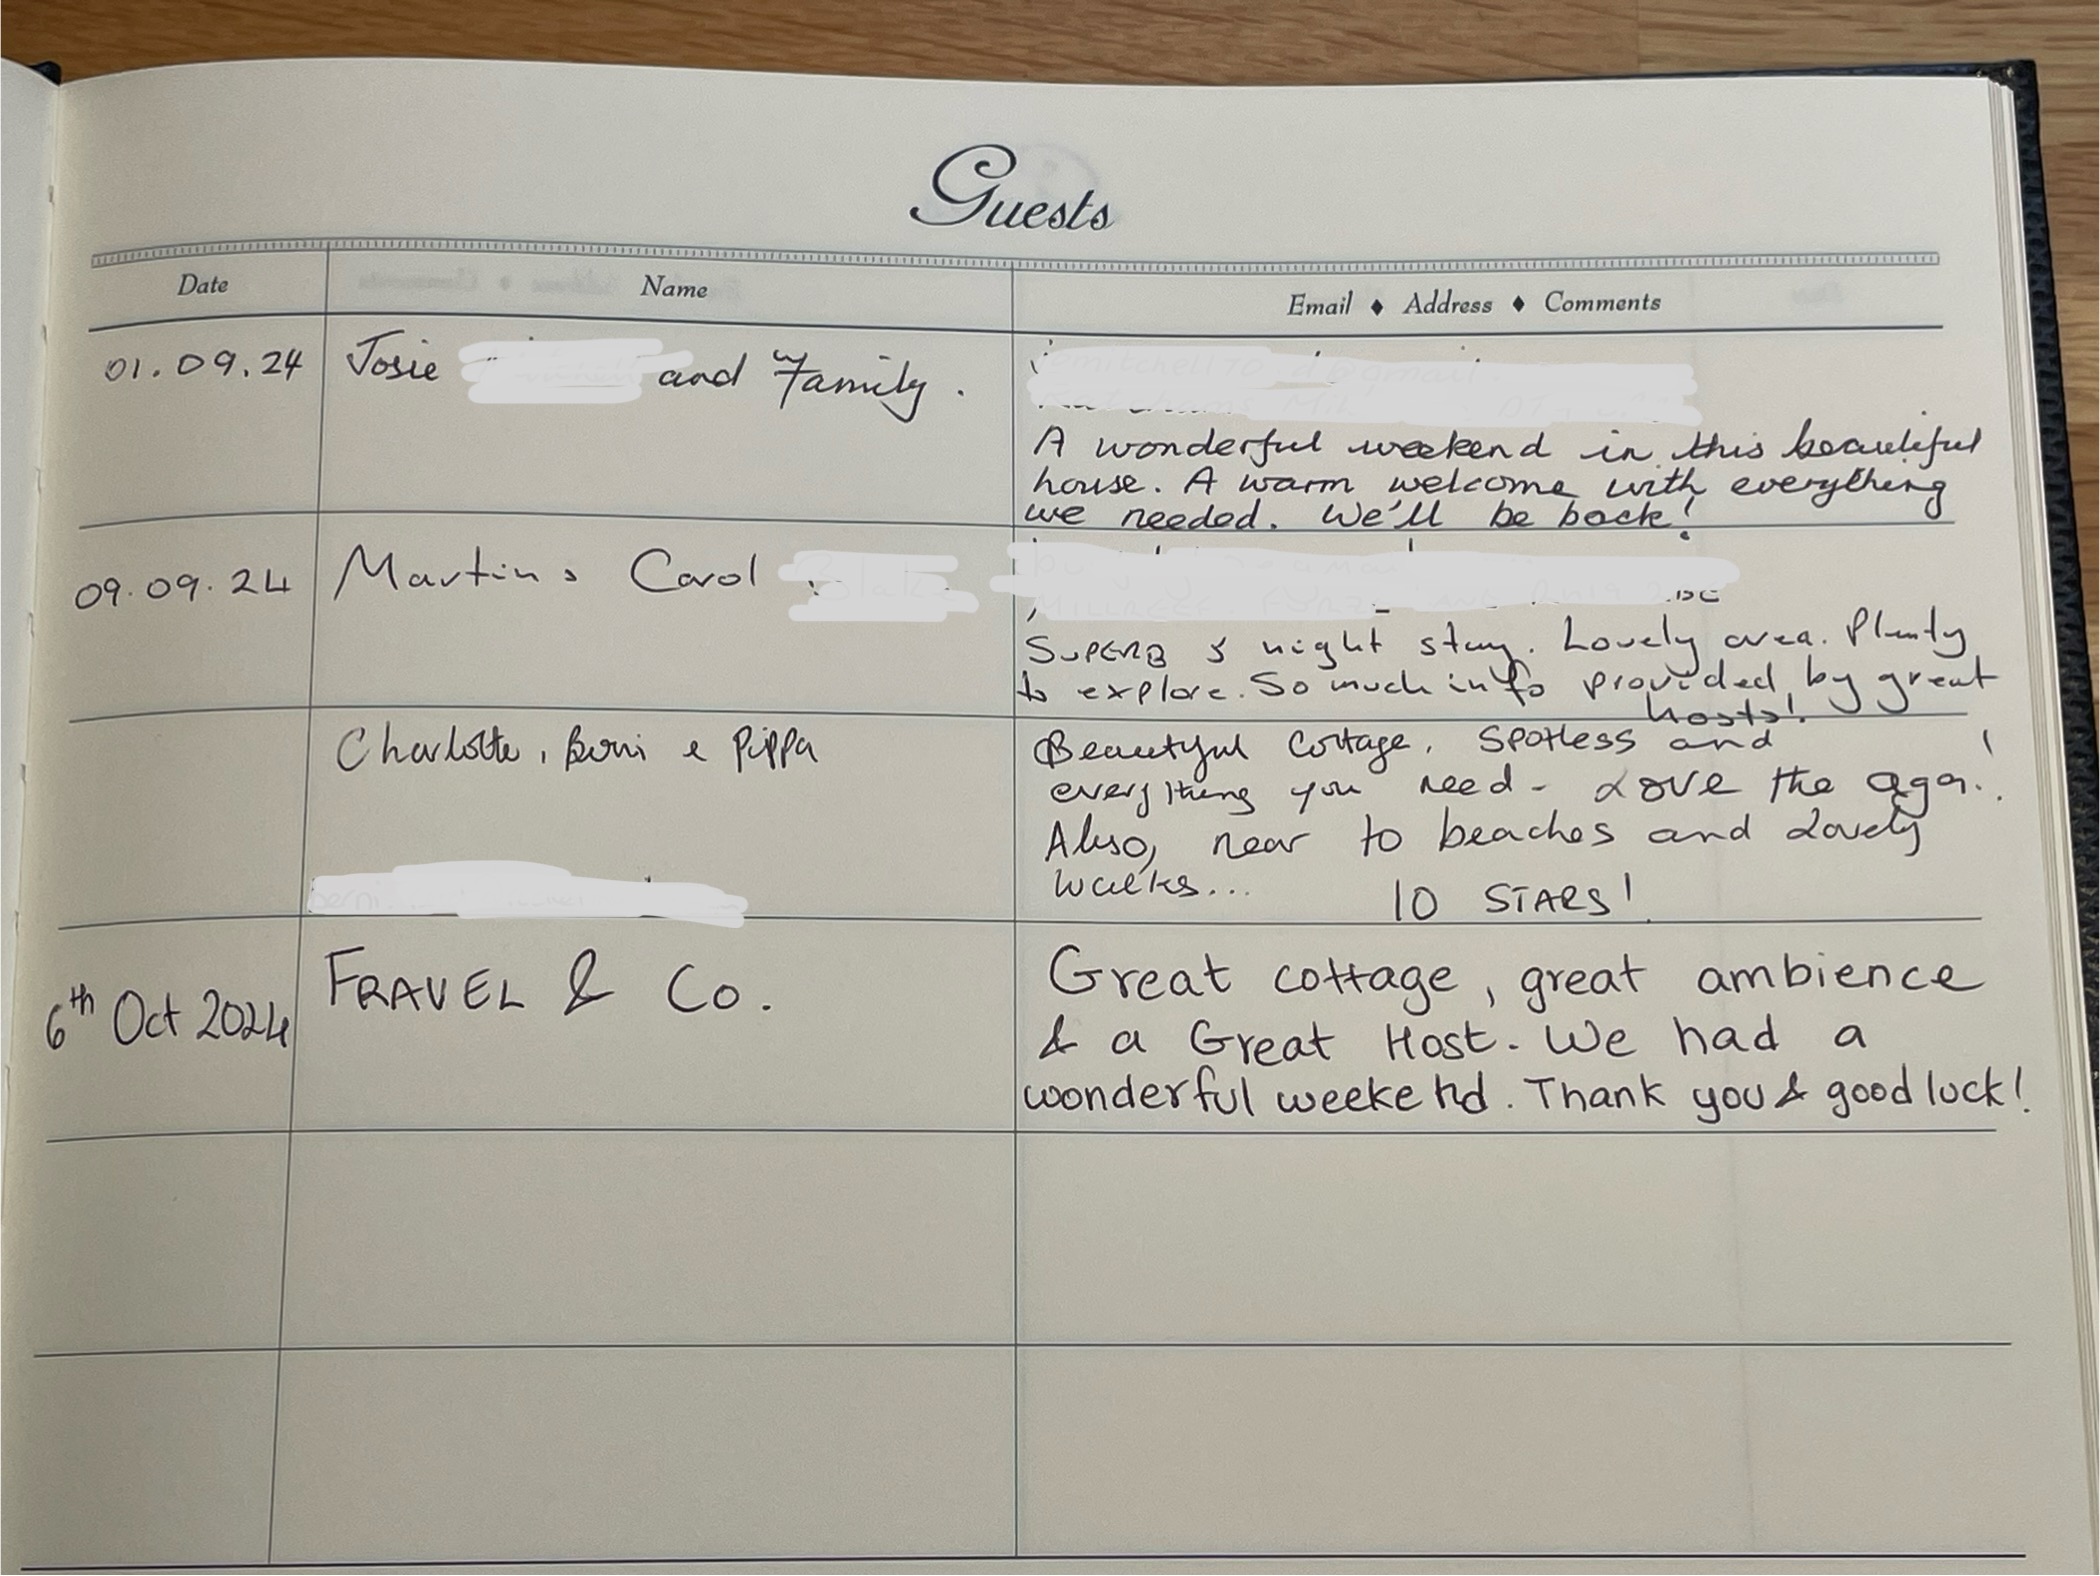 Guests
Date Name Email ♦ Address ♦ Comments
01.09.24 Josie and Family.
A wonderful weekend in this beautiful
house. A warm welcome with everything
we needed. We'll be back!
09.09.24 Martin & Carol
SUPERB 5 night stay. Lovely area. Plenty
to explore. So much info provided by great
hosts!
Charlotte, Berni & Pippa
Beautyful Cottage. Spotless and
everything you need - Love the aga!
Also, near to beaches and Lovely
walks...
10 STARS!
6th Oct 2024 FRAVEL & Co.
Great cottage, great ambience
& a Great Host. We had a
wonderful weekend. Thank you & good luck!